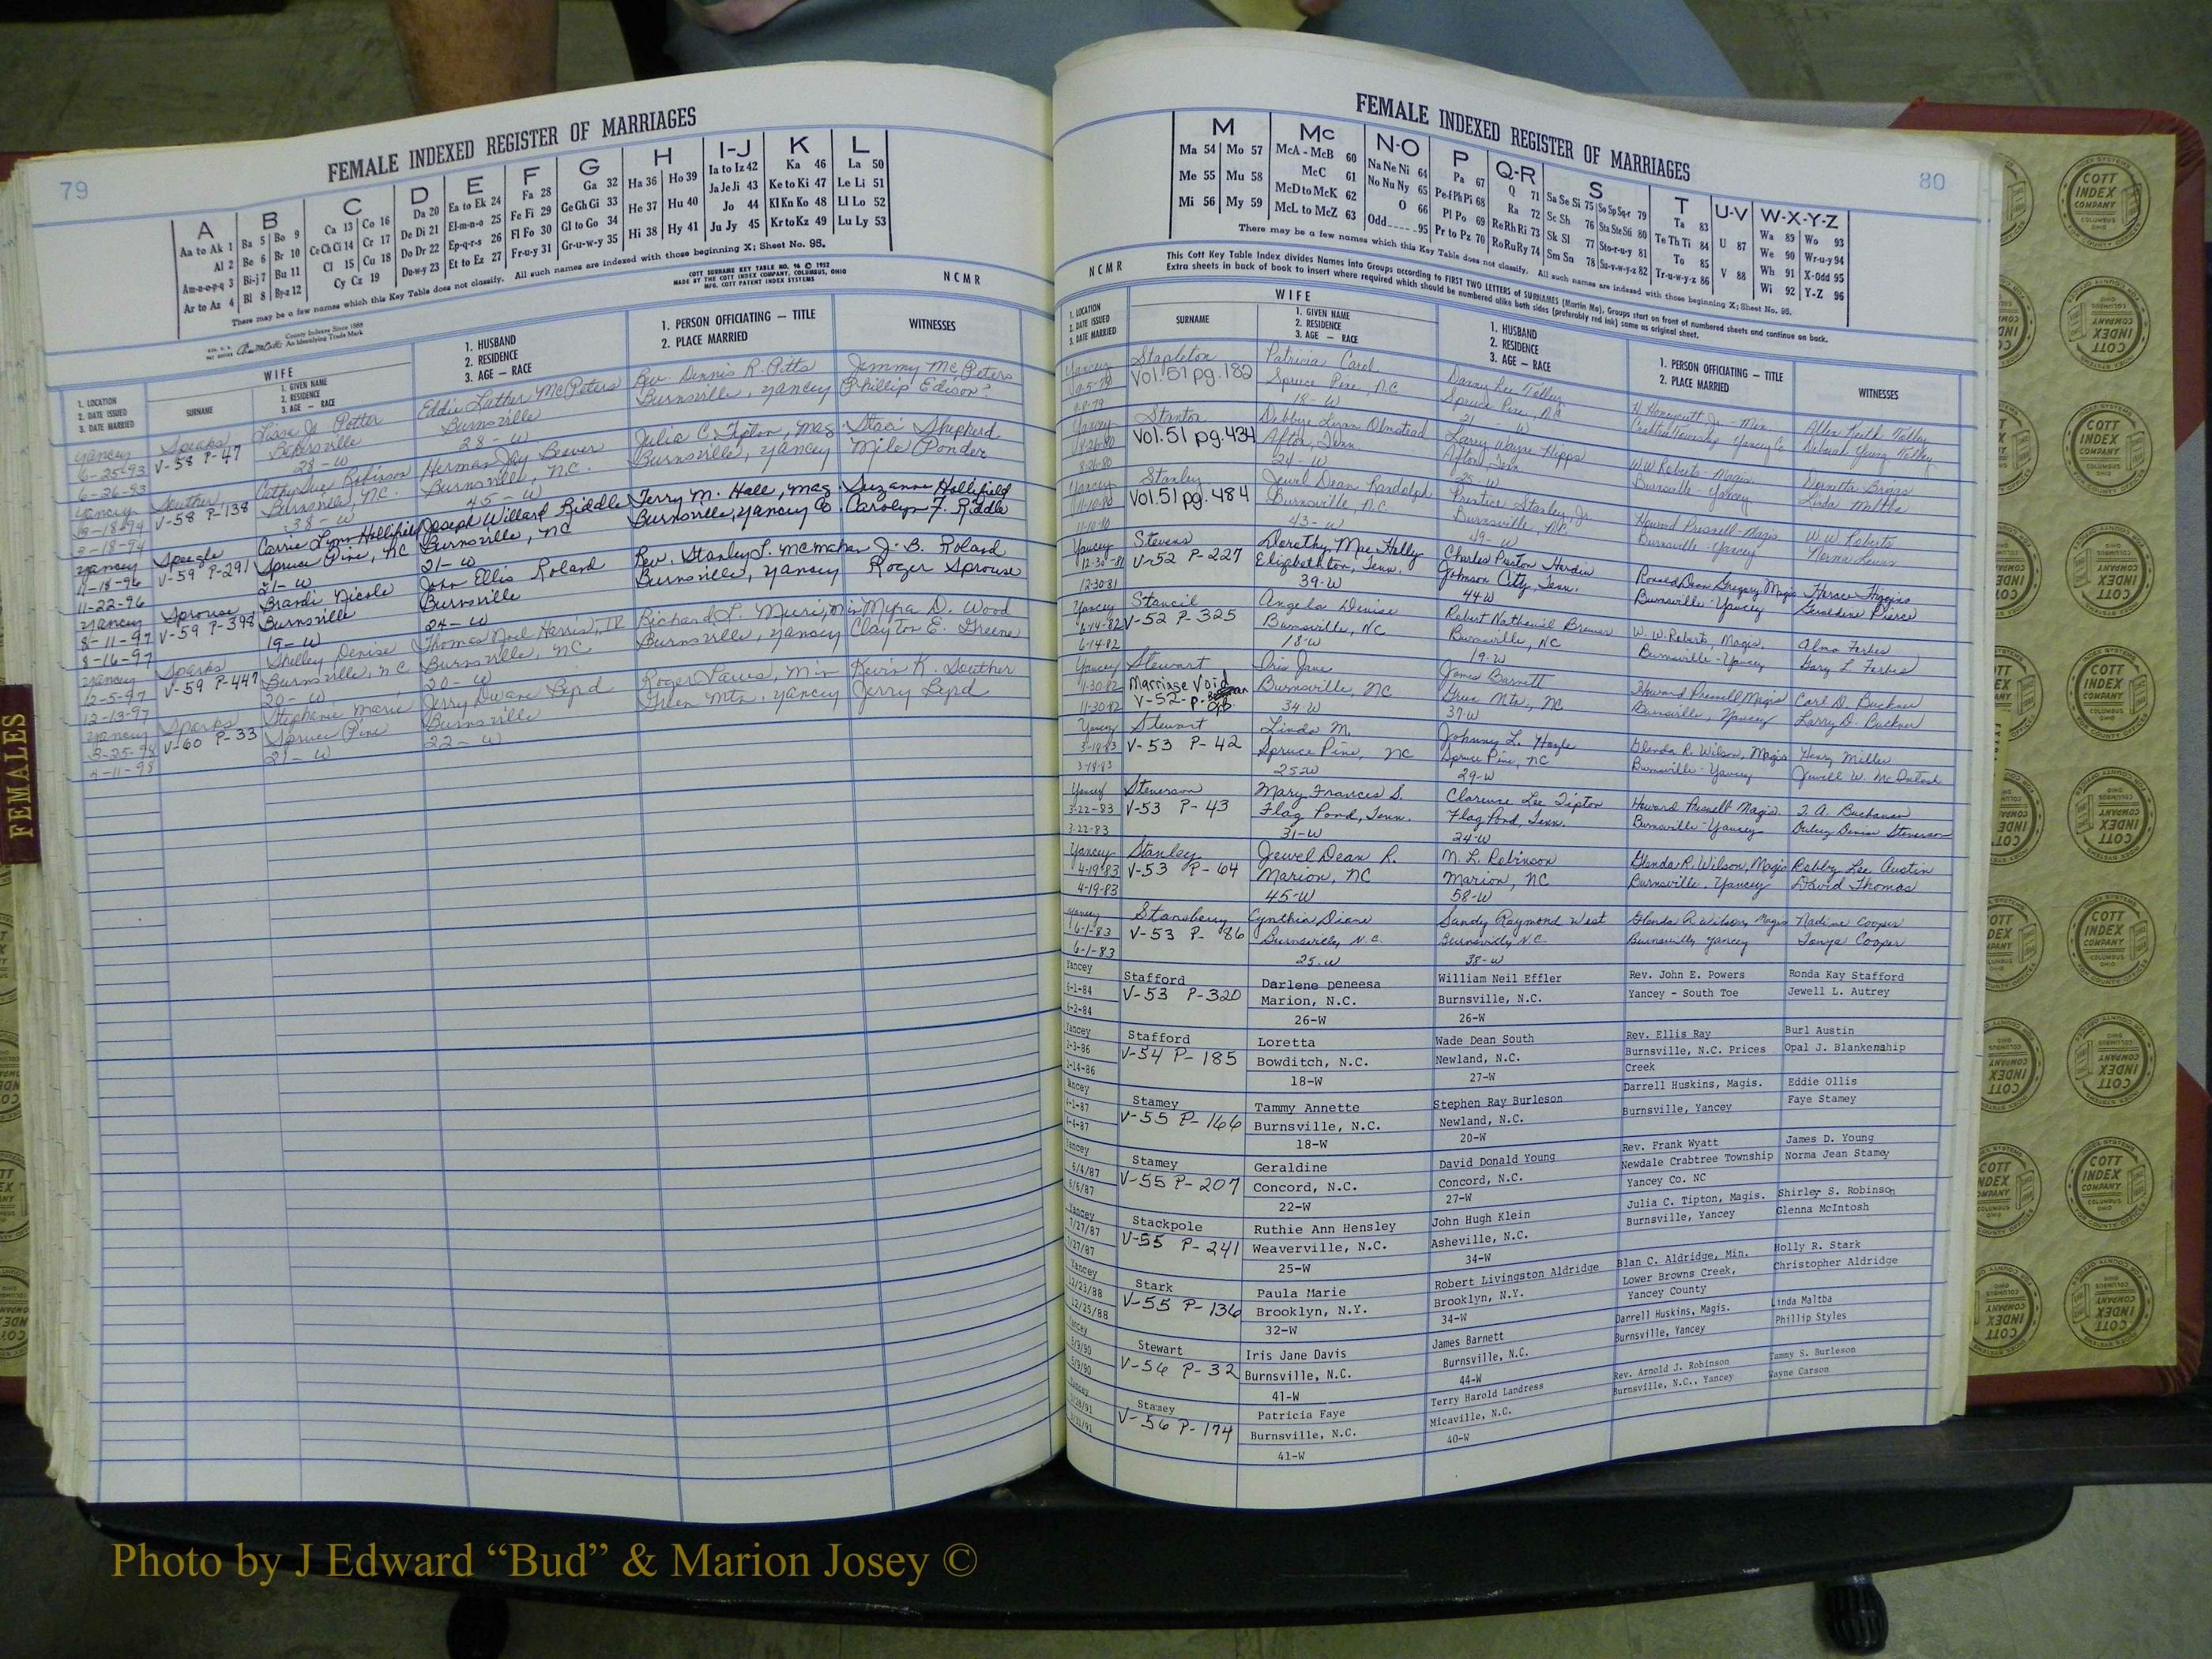 79
FEMALE INDEXED REGISTER OF MARRIAGES
A B C D E F G H I-J K L
Aa to Ak 1 Ba 5 Bo 9 Ca 13 Co 16 Da 20 Ea to Ek 24 Fa 28 Ga 32 Ha 36 Ho 39 Ia to Iz 42 Ka 46 La 50
Al 2 Be 6 Br 10 Ce Ch Ci 14 Cr 17 De Di 21 El-m-n-o 25 Fe Fi 29 Ge Gh Gi 33 He 37 Hu 40 Ja Je Ji 43 Ke to Ki 47 Le Li 51
Am-n-o-p-q 3 Bi-j 7 Bu 11 Cl 15 Cu 18 Do Dr 22 Ep-q-r-s 26 Fl Fo 30 Gl to Go 34 Hi 38 Hy 41 Jo 44 Kl Kn Ko 48 Ll Lo 52
Ar to Az 4 Bl 8 By-z 12 Cy Cz 19 Du-w-y 23 Et to Ez 27 Fr-u-y 31 Gr-u-w-y 35 Ju Jy 45 Kr to Kz 49 Lu Ly 53
There may be a few names which this Key Table does not classify. All such names are indexed with those beginning X; Sheet No. 95.
County Indexes Since 1888
An Identifying Trade Mark
COTT SURNAME KEY TABLE NO. 96 © 1952
MADE BY THE COTT INDEX COMPANY, COLUMBUS, OHIO
MFG. COTT PATENT INDEX SYSTEMS
NCMR
WIFE
1. LOCATION
2. DATE ISSUED
3. DATE MARRIED
SURNAME
1. GIVEN NAME
2. RESIDENCE
3. AGE — RACE
1. HUSBAND
2. RESIDENCE
3. AGE — RACE
1. PERSON OFFICIATING — TITLE
2. PLACE MARRIED
WITNESSES
Yancey Speaks Lissa Jo Potter Eddie Luther McPeters Rev. Dennis R. Pitts Jimmy McPeters
6-25-93 V-58 P-47 Bakersville Burnsville Burnsville, Yancey Phillip Edison?
6-26-93 28-W 28-W
Yancey Souther Cathy Sue Robinson Herman Jay Beaver Julia C. Tipton, Mag Staci Shepherd
3-18-94 V-58 P-138 Burnsville, NC. Burnsville, N.C. Burnsville, Yancey Mile Ponder
3-18-94 38-W 45-W
Yancey Speagle Carrie Lynn Hollifield Joseph Willard Riddle Terry M. Hall, Mag Suzanne Hollifield
11-18-96 V-59 P-291 Spruce Pine, NC Burnsville, NC Burnsville, Yancey Co Carolyn F. Riddle
11-22-96 21-W 21-W
Yancey Sprouse Brandi Nicole John Ellis Roland Rev. Stanley L. McMahan J. B. Roland
8-11-97 V-59 P-398 Burnsville Burnsville Burnsville, Yancey Roger Sprouse
8-16-97 19-W 24-W
Yancey Sparks Shelley Denise Thomas Noel Harris, IV Richard L. Muri, Min Myra D. Wood
12-5-97 V-59 P-447 Burnsville, NC Burnsville, NC. Burnsville, Yancey Clayton E. Greene
12-13-97 20-W 20-W
Yancey Sparks Stephanie Marie Jerry Dwane Byrd Roger Laws, Min Kevin K. Souther
3-25-98 V-60 P-33 Spruce Pine Burnsville Green Mtn., Yancey Jerry Byrd
4-11-98 21-W 22-W
FEMALES
80
FEMALE INDEXED REGISTER OF MARRIAGES
M Mc N-O P Q-R S T U-V W-X-Y-Z
Ma 54 Mo 57 McA - McB 60 Na Ne Ni 64 Pa 67 Q 71 Sa Se Si 75 So Sp Sq-r 79 Ta 83 U 87 Wa 89 Wo 93
Me 55 Mu 58 McC 61 No Nu Ny 65 Pe-f Ph Pi 68 Ra 72 Sc Sh 76 Sta Ste Sti 80 Te Th Ti 84 V 88 We 90 Wr-u-y 94
Mi 56 My 59 McD to McK 62 O 66 Pl Po 69 Re Rh Ri 73 Sk Sl 77 Sto-r-u-y 81 To 85 Wh 91 X-Odd 95
McL to McZ 63 Odd 95 Pr to Pz 70 Ro Ru Ry 74 Sm Sn 78 Su-v-w-y-z 82 Tr-u-w-y-z 86 Wi 92 Y-Z 96
There may be a few names which this Key Table does not classify. All such names are indexed with those beginning X; Sheet No. 95.
This Cott Key Table Index divides Names into Groups according to FIRST TWO LETTERS of SURNAMES (Martin Ma), Groups start on front of numbered sheets and continue on back.
Extra sheets in back of book to insert where required which should be numbered alike both sides (preferably red ink) same as original sheet.
NCMR
WIFE
1. LOCATION
2. DATE ISSUED
3. DATE MARRIED
SURNAME
1. GIVEN NAME
2. RESIDENCE
3. AGE — RACE
1. HUSBAND
2. RESIDENCE
3. AGE — RACE
1. PERSON OFFICIATING — TITLE
2. PLACE MARRIED
WITNESSES
Yancey Stapleton Patricia Carol Danny Lee Talley H. Honeycutt Jr. - Min. Allen Keith Talley
Vol. 51 pg. 182 Spruce Pine, NC Spruce Pine, NC Crabtree Township Yancey Co Deborah Young Talley
18-W 21-W
Yancey Stanton Debbye Logan Olmstead Larry Wayne Hipps W.W. Roberts - Magis
8-26-80 Vol. 51 pg. 434 Afton, Tenn. Afton, Tenn Burnsville - Yancey Linda Maltba
8-26-80 24-W 25-W
Yancey Stanley Jewel Dean Randolph Prentice Stanley, Jr. Howard Presnell - Magis. W.W. Roberts
11-10-80 Vol. 51 pg. 484 Burnsville, N.C. Burnsville, NC. Burnsville - Yancey Norma Lewis
43-W 49-W
Yancey Stevens Dorothy Mae Holly Charles Preston Hardin Ronald Dean Gregory, Magis Horace Higgins
12-30-81 V-52 P-227 Elizabethton, Tenn. Johnson City, Tenn. Burnsville - Yancey Geraldine Pierce
12-30-81 39-W 44W
Yancey Stancil Angela Denise Robert Nathaniel Brewer W. W. Roberts, Magis. Alma Forbes
6-14-82 V-52 P-325 Burnsville, NC Burnsville, NC Burnsville - Yancey Gary L. Forbes
6-14-82 18-W 19-W
Yancey Stewart Iris Jane James Barnett Howard Presnell, Magis Carl D. Buckner
11-30-82 Marriage Void Burnsville, NC Green Mtn., NC Burnsville, Yancey Larry D. Buckner
11-30-82 V-52-P- 34-W 37-W
Yancey Stewart Linda M. Johnny L. Hoyle Glenda R. Wilson, Magis Henry Miller
3-18-83 V-53 P-42 Spruce Pine, NC Spruce Pine, NC Burnsville - Yancey Jewell W. McIntosh
3-18-83 25-W 29-W
Yancey Stevenson Mary Frances S. Clarence Lee Tipton Howard Presnell Magis. T. A. Buchanan
3-22-83 V-53 P-43 Flag Pond, Tenn. Flag Pond, Tenn. Burnsville - Yancey Denise Stevenson
3-22-83 31-W 24-W
Yancey Stanley Jewel Dean R. M. L. Robinson Glenda R. Wilson, Magis Robby Lee Austin
4-19-83 V-53 P-64 Marion, NC Marion, NC Burnsville, Yancey David Thomas
4-19-83 45-W 58-W
Yancey Stansberry Cynthia Diane Sandy Raymond West Glenda R. Wilson, Magis Nadine Cooper
6-1-83 V-53 P-86 Burnsville, N.C. Burnsville, N.C. Burnsville, Yancey Tonya Cooper
6-1-83 25-W 38-W
Yancey Stafford Darlene Deneesa William Neil Effler Rev. John E. Powers Ronda Kay Stafford
6-1-84 V-53 P-320 Marion, N.C. Burnsville, N.C. Yancey - South Toe Jewell L. Autrey
6-2-84 26-W 26-W
Yancey Stafford Loretta Wade Dean South Rev. Ellis Ray Burl Austin
2-3-86 V-54 P-185 Bowditch, N.C. Newland, N.C. Burnsville, N.C. Prices Opal J. Blankenship
2-14-86 18-W 27-W Creek
Yancey Stamey Tammy Annette Stephen Ray Burleson Darrell Huskins, Magis. Eddie Ollis
-1-87 V-55 P-166 Burnsville, N.C. Newland, N.C. Burnsville, Yancey Faye Stamey
-4-87 18-W 20-W
Yancey Stamey Geraldine David Donald Young Rev. Frank Wyatt James D. Young
6/4/87 V-55 P-207 Concord, N.C. Concord, N.C. Newdale Crabtree Township Norma Jean Stamey
6/6/87 22-W 27-W Yancey Co. NC
Yancey Stackpole Ruthie Ann Hensley John Hugh Klein Julia C. Tipton, Magis. Shirley S. Robinson
7/27/87 V-55 P-241 Weaverville, N.C. Asheville, N.C. Burnsville, Yancey Glenna McIntosh
7/27/87 25-W 34-W
Yancey Stark Paula Marie Robert Livingston Aldridge Blan C. Aldridge, Min. Holly R. Stark
12/23/88 V-55 P-136 Brooklyn, N.Y. Brooklyn, N.Y. Lower Browns Creek, Christopher Aldridge
12/25/88 32-W 34-W Yancey County
Yancey Stewart Iris Jane Davis James Barnett Darrell Huskins, Magis. Linda Maltba
5/9/90 V-56 P-32 Burnsville, N.C. Burnsville, N.C. Burnsville, Yancey Phillip Styles
5/9/90 41-W 44-W
Yancey Stamey Patricia Faye Terry Harold Landress Rev. Arnold J. Robinson Tammy S. Burleson
V-56 P-174 Burnsville, N.C. Micaville, N.C. Burnsville, N.C., Yancey Wayne Carson
41-W 40-W
COTT INDEX COMPANY COLUMBUS OHIO
Photo by J Edward “Bud” & Marion Josey ©